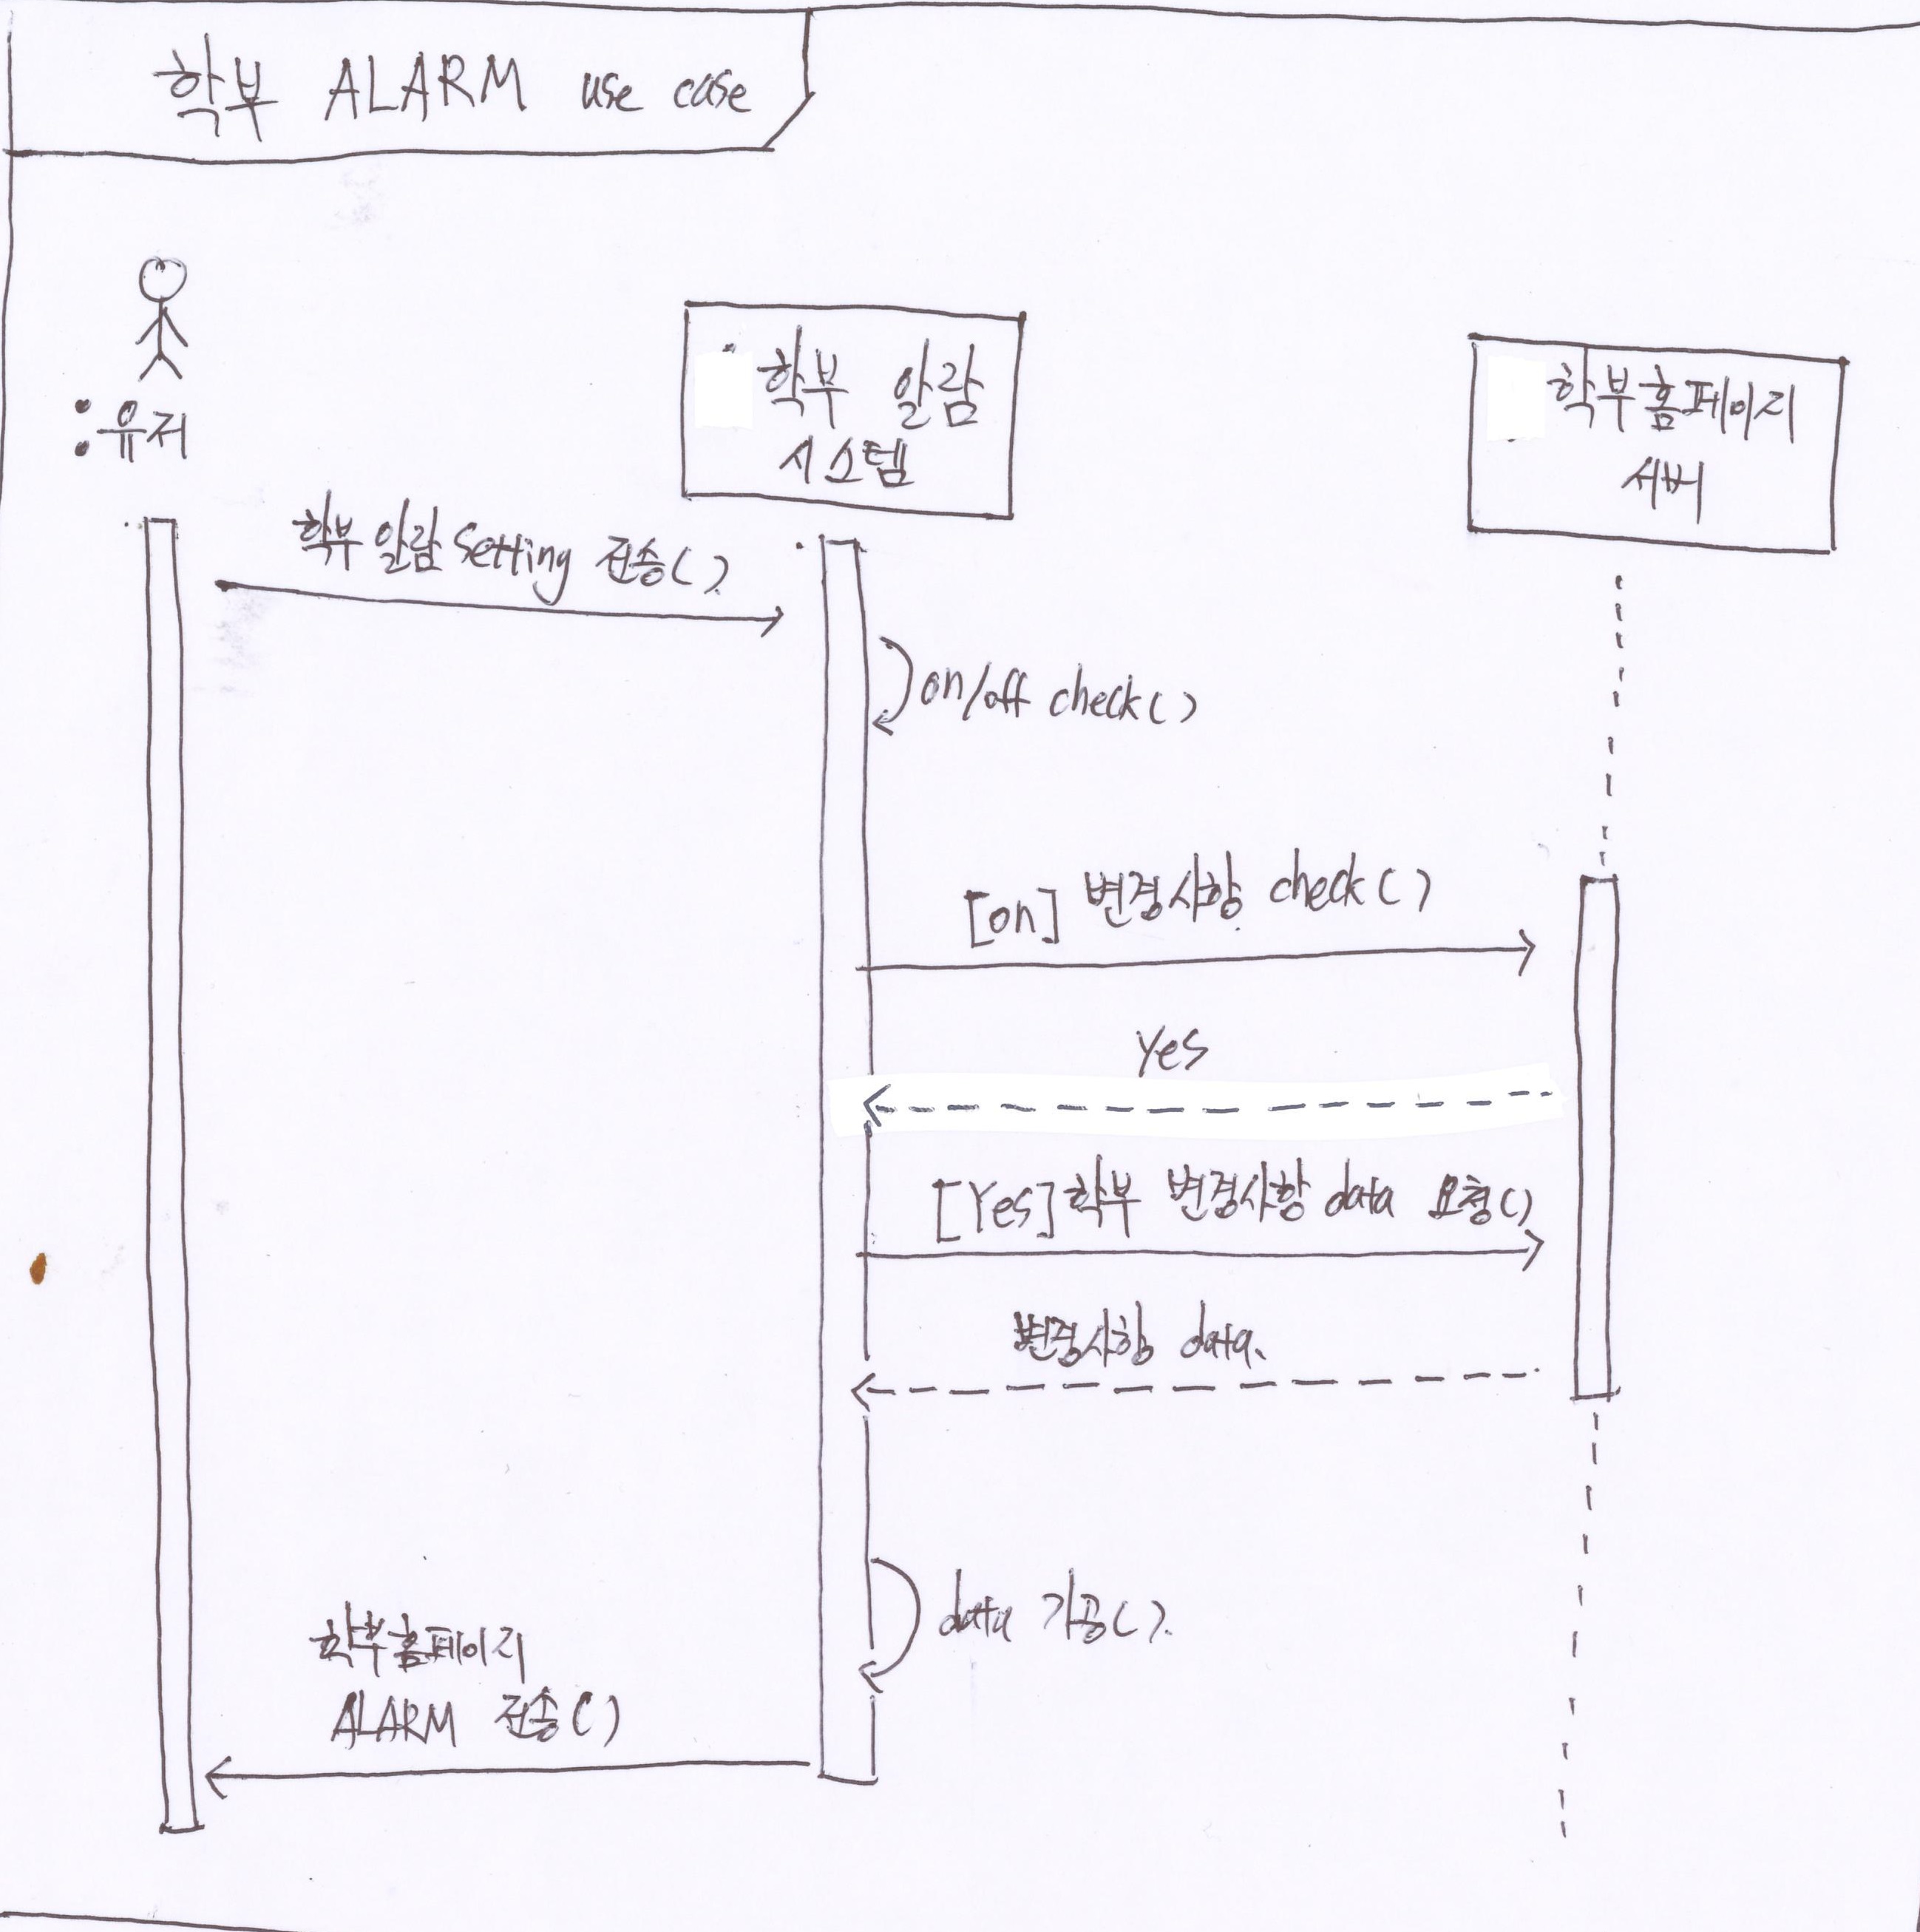 학부 ALARM use case
:유저
학부 알람
시스템
학부홈페이지
서버
학부 알람 Setting 전송( )
on/off check( )
[on] 변경사항 check( )
Yes
[Yes]학부 변경사항 data 요청( )
변경사항 data.
data 가공( ).
학부홈페이지
ALARM 전송( )